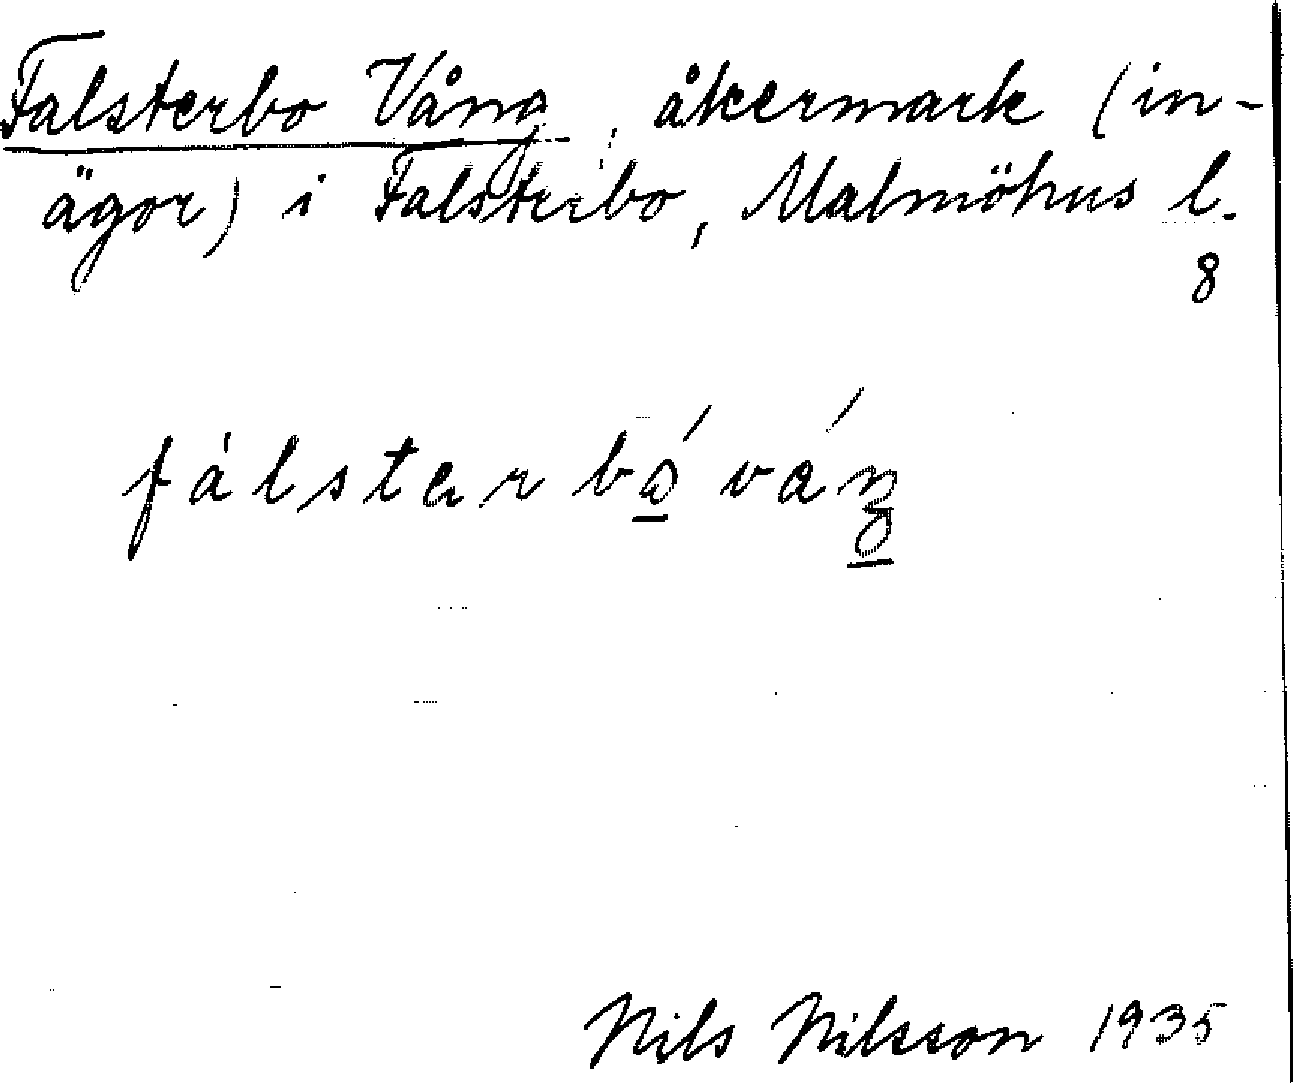 Falsterbo Vång, åkermark (in-
ägor) i Falsterbo, Malmöhus l.
8
Nils Nilsson 1935